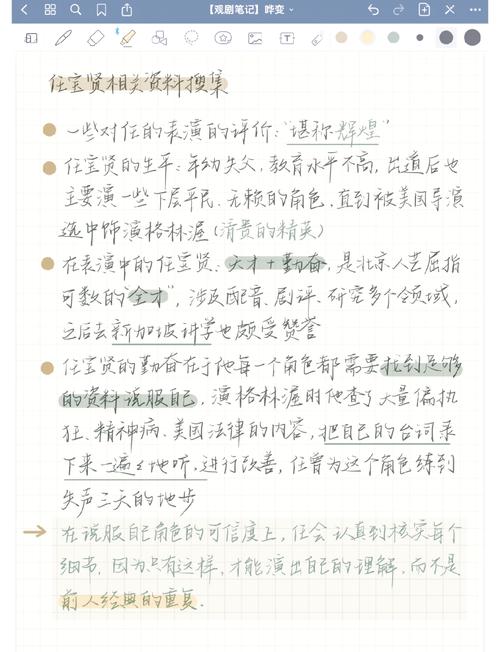 【观剧笔记】哗变
任宝贤相关资料搜集
一些对任的表演的评价:“堪称辉煌”
任宝贤的生平:年幼失父,教育水平不高,出道后也
主要演一些下层平民、无赖的角色,直到被美国导演
选中饰演格林渥(清贵的精英)
在表演中的任宝贤:天才+勤奋,是北京人艺屈指
可数的“全才”,涉及配音、剧评、研究多个领域,
之后去新加坡讲学也颇受赞誉
任宝贤的勤奋在于他每一个角色都需要找到足够
的资料说服自己,演格林渥时他查了大量偏执
狂、精神病、美国法律的内容,把自己的台词录
下来一遍々地听,进行改善,任曾为这个角色练到
失声三天的地步
在说服自己角色的可信度上,任会认真到核实每个
细节,因为只有这样,才能演出自己的理解,而不是
前人经典的重复.